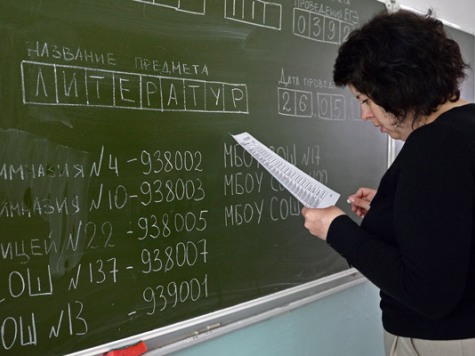 ПРОВЕДЕНИЯ ЕГЭ
0392
НАЗВАНИЕ ПРЕДМЕТА
ЛИТЕРАТУР
ДАТА ПРОВЕД
26 05
ИМНАЗИЯ №4-938002
ИМНАЗИЯ №10-938003
ИЦЕЙ №22-938005
СОШ №137-938007
СОШ №13 939001
МБОУ СОШ №17
МБОУ СОШ
МБОУ СОШ